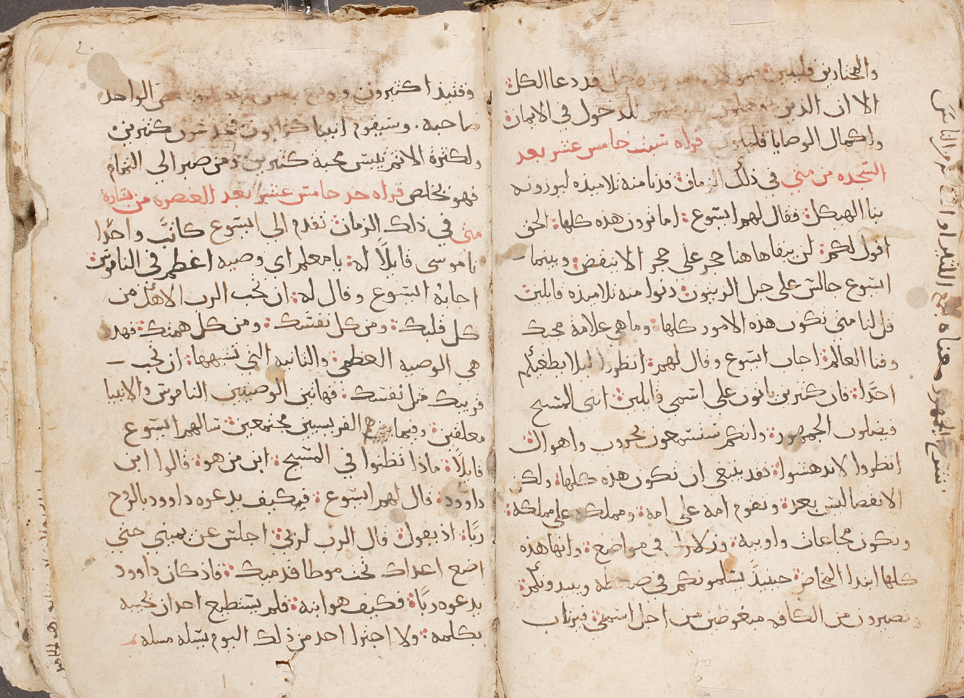 والمختارين قليلين قد دعا الكل
الا ان الذين الدخول في الايمان
واكمال الوصايا قليلين قراه سبت خامس عشر بعد
السجده من متى في ذلك الزمان قدما منه تلاميذه ليوروه
بنا الهيكل فقال لهم ايسوع اما ترون هذه كلها الحق
اقول لكم لن يبقا هاهنا حجر على حجر الا ينقض وبينما
ايسوع جالس على جبل الزيتون دنوا منه تلاميذه قايلين
قل لنا متى تكون هذه الامور كلها وما هي علامة مجيك
وفنا العالم اجاب ايسوع وقال لهم انظروا ليلا يطغيكم
احدًا فان كثيرين ياتون على اسمي قايلين انني المسيح
فيضلون الجمهور وانكم ستسمعون بحروب واهوال
انظروا لا تدهشوا فقد ينبغي ان تكون هذه كلها ولكن
الانقضا ليس بعد وتقوم امه على امه ومملكه على مملكه
ويكون مجاعات واوبيه وزلازل في مواضع وانها هذه
كلها ابتدا المخاض حينيذ يسلمونكم في ويبيدونكم
وتصيرون من الكافه مبغوضين من اجل اسمي فيرتاب
شرح الجمهور معناه جمع
وقتيذ اكثيرون بعض الواحد
صاحبه وسيقوم انبيا كذابون كثيرين
ولكثرة الاثم يبس محبة كثيرين ومن صبر الى التمام
فهو يخلص قراه حد خامس عشر بعد العنصره من بشارة
متى في ذاك الزمان تقدم الى ايسوع كاتب واحدًا
ناموسى قايلًا له يا معلم اي وصيه اعظم في الناموس
اجابه ايسوع وقال له ان تحب الرب الاهك من
كل قلبك ومن كل نفسك ومن كل همتك فهده
هي الوصيه العظمى والثانيه التي تشبهها ان تحب
قريبك مثل نفسك فهاتين الوصيتين الناموس والانبيا
معلقين وفيما الفريسيين مجتمعين سالهم ايسوع
قايلًا ماذا تظنوا في المسيح ابن من هو قالوا ابن
داوود قال لهم ايسوع فكيف يدعوه داوود بالروح
ربًا اذ يقول قال الرب لربي اجلس عن يميني حتى
اضع اعداك تحت موطا قدميك فاذ كان داوود
يدعوه ربًا فكيف هو ابنه فلم يستطيع احد ان يجيبه
بكلمه ولا اجترا احد من ذلك اليوم يسله مسله